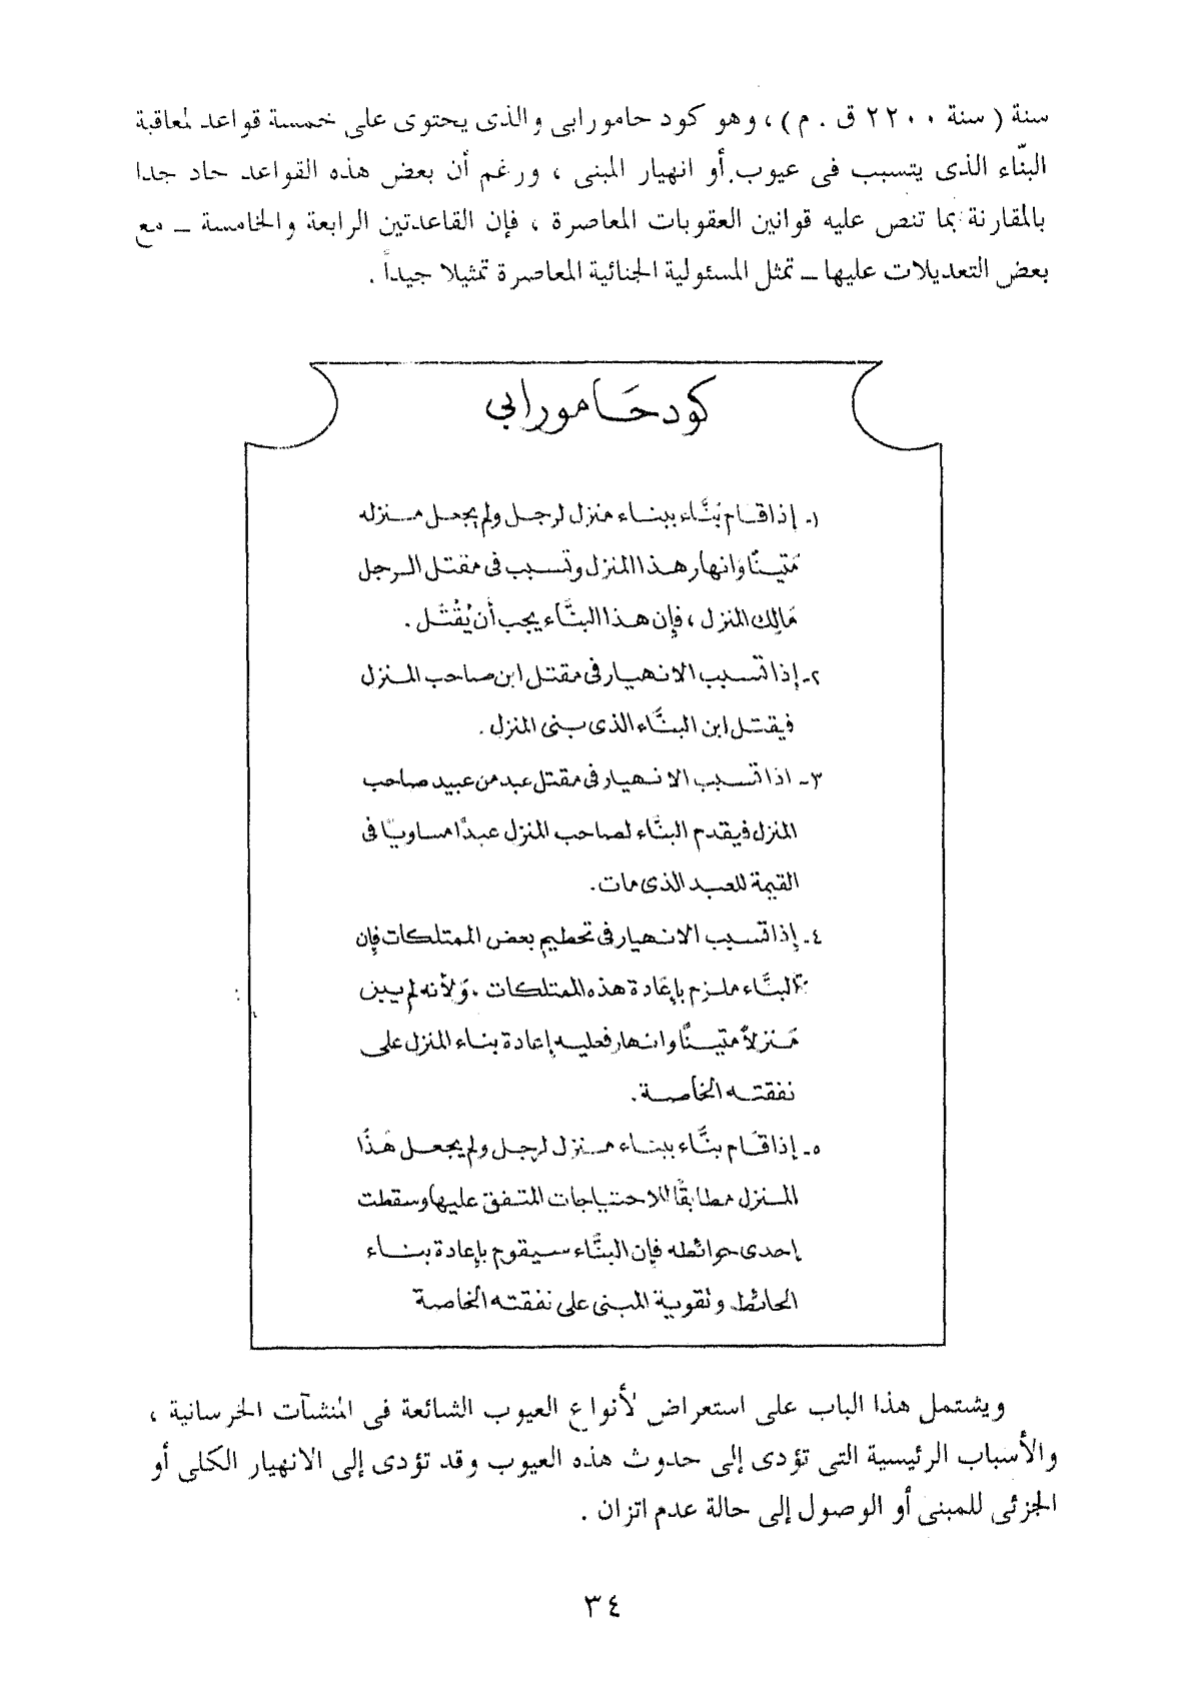 سنة ( سنة ٢٢٠٠ ق . م ) ، وهو كود حامورابى والذى يحتوى على خمسة قواعد لمعاقبة
البنّاء الذى يتسبب فى عيوب أو انهيار المبنى ، ورغم أن بعض هذه القواعد حاد جدا
بالمقارنة بما تنص عليه قوانين العقوبات المعاصرة ، فإن القاعدتين الرابعة والخامسة ــ مع
بعض التعديلات عليها ــ تمثل المسئولية الجنائية المعاصرة تمثيلا جيداً .
كود حَامورابى
١- إذا قام بَنَّاء ببناء منزل لرجل ولم يجعل منزله
مَتينًا وَانهار هذا المنزل وتسبب فى مقتل الرجل
مَالك المنزل ، فإن هذا البنَّاء يجب أن يُقْتَل .
٢- إذا تسبب الانهيار فى مقتل ابن صاحب المنزل
فيقتل ابن البنَّاء الذى بنى المنزل .
٣- اذا تسبب الانهيار فى مقتل عبد من عبيد صاحب
المنزل فيقدم البنَّاء لصاحب المنزل عبدًا مساويًا فى
القيمة للعبد الذى مات .
٤- إذا تسبب الانهيار فى تحطيم بعض الممتلكات فإن
البنَّاء ملزم بإعَادة هذه الممتلكات . وَلأنه لم يبن
مَنزلاً متينًا وانهار فعليه إعادة بناء المنزل على
نفقته الخاصة .
٥- إذا قَام بنَّاء ببناء منزل لرجل ولم يجعل هَذا
المنزل مطابقًا للاحتياجات المتفق عليها وسقطت
إحدى حوائطه فإن البنَّاء سيقوم بإعادة بناء
الحائط وتقوية المبنى على نفقته الخاصة
ويشتمل هذا الباب على استعراض لأنواع العيوب الشائعة فى المنشآت الخرسانية ،
والأسباب الرئيسية التى تؤدى إلى حدوث هذه العيوب وقد تؤدى إلى الانهيار الكلى أو
الجزئى للمبنى أو الوصول إلى حالة عدم اتزان .
٣٤